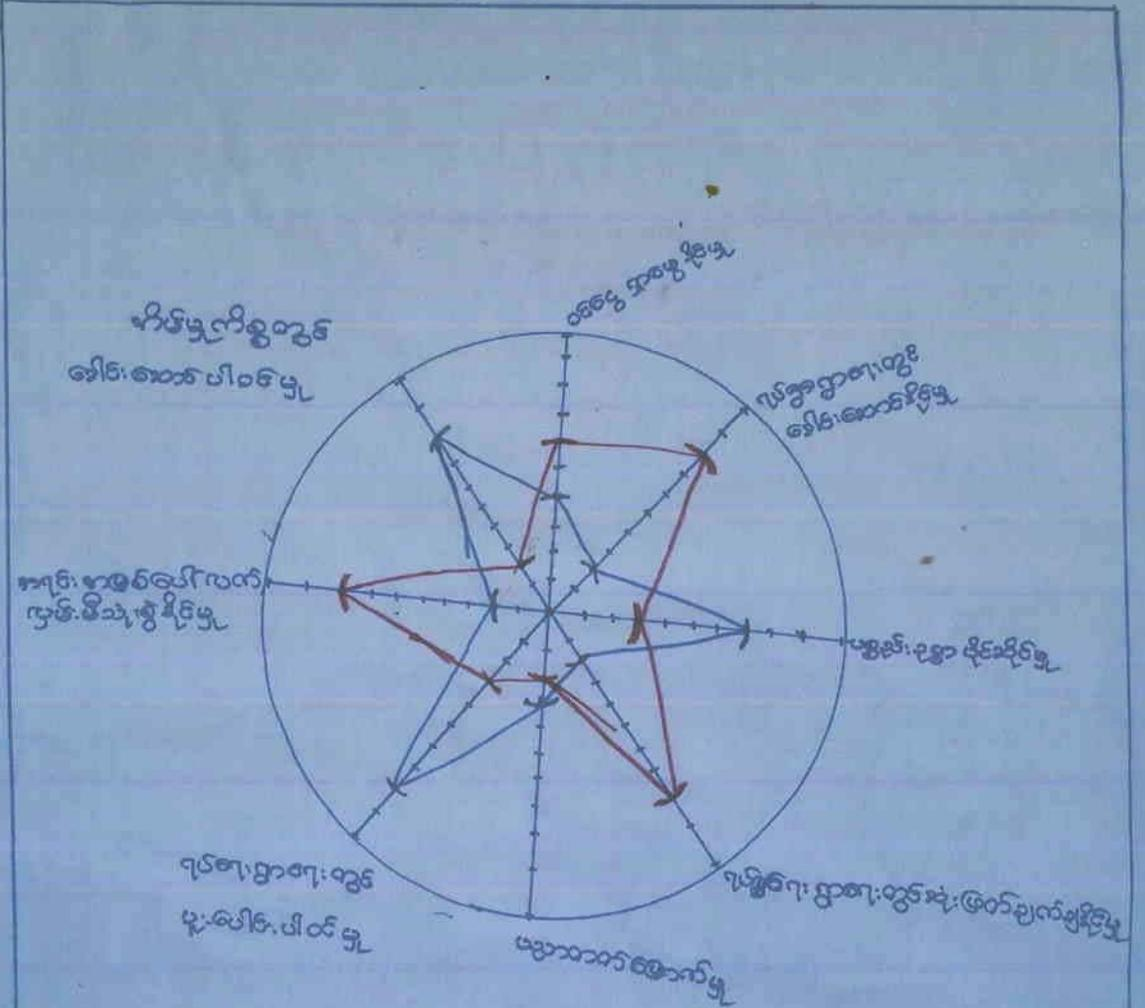 ဝင်ငွေ ရှာဖွေ နိုင်မှု
ရပ်ရွာရေးတွင်
ခေါင်းဆောင်နိုင်မှု
ပစ္စည်းဥစ္စာ ပိုင်ဆိုင်မှု
ရွာရေးတွင်ဆုံးဖြတ်ချက်ချနိုင်မှု
ပညာတတ်မြောက်မှု
ရပ်ရေးရွာရေးတွင်
ပူးပေါင်းပါဝင်မှု
လှမ်းမီသုံးစွဲနိုင်မှု
အိမ်မှုကိစ္စတွင်
ခေါင်းဆောင်ပါဝင်မှု